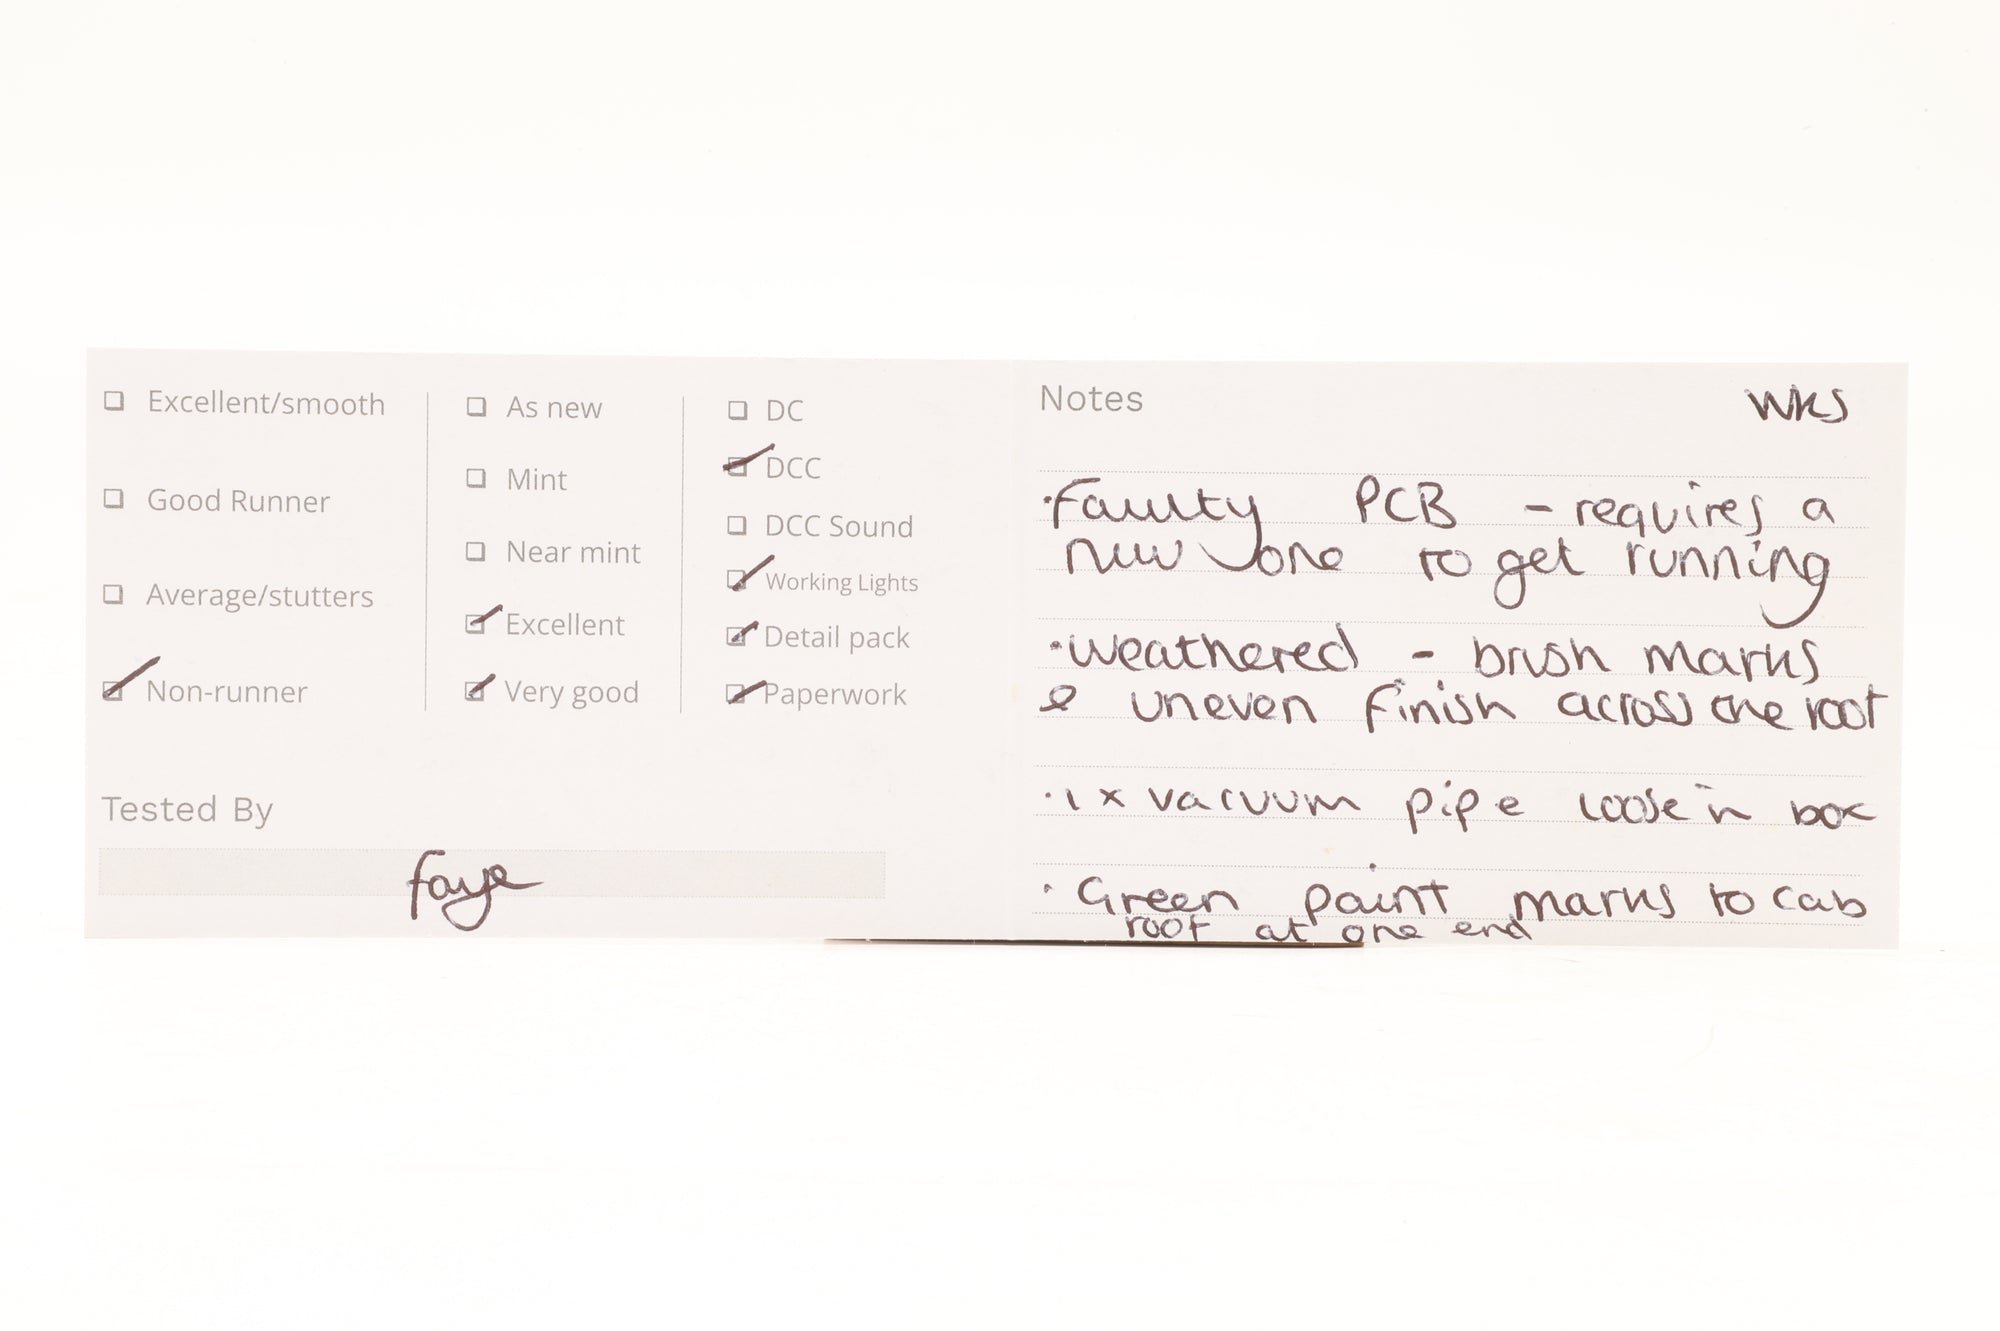 Excellent/smooth
Good Runner
Average/stutters
Non-runner
As new
Mint
Near mint
Excellent
Very good
DC
DCC
DCC Sound
Working Lights
Detail pack
Paperwork
Tested By
faye
Notes
WKS
·Faulty PCB - requires a
new one to get running
·Weathered - brush marks
& uneven finish across the roof
·1x vacuum pipe loose in box
·Green paint marks to cab
roof at one end